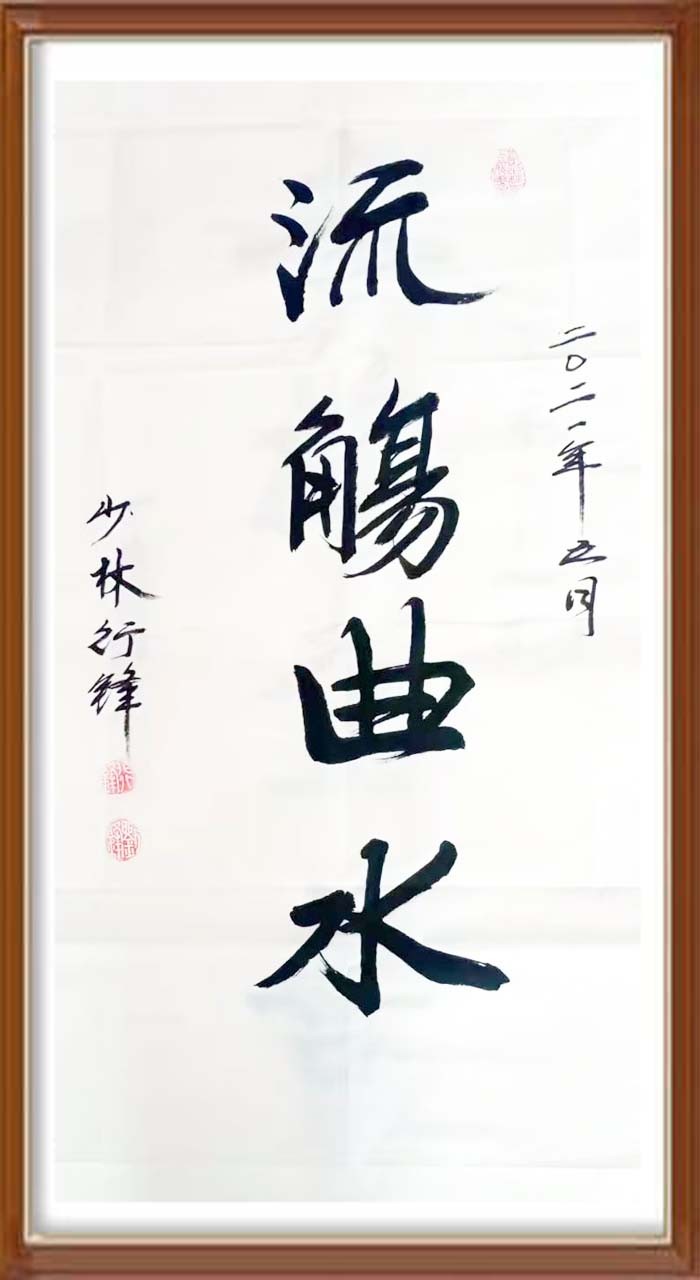 二〇二一年五月
流觴曲水
少林行鋒